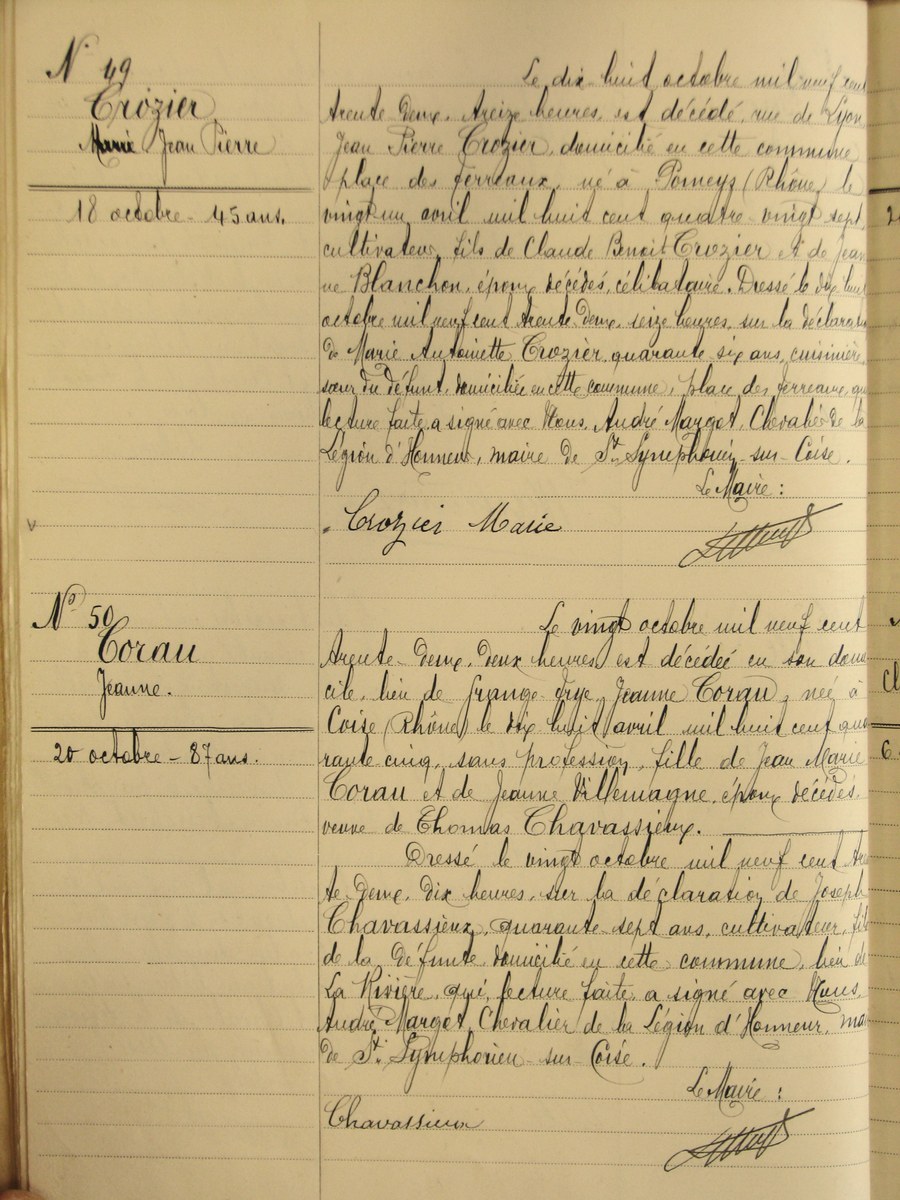 N° 49
Crozier
Jean Pierre
18 octobre - 45 ans.
Le dix huit octobre mil neuf cent
trente deux, treize heures, est décédé, rue de Lyon
Jean Pierre Crozier, domicilié en cette commune
place des Terreaux, né à Pomeys (Rhône) le
vingt un avril mil huit cent quatre vingt sept
cultivateur, fils de Claude Benoit Crozier et de Jean
ne Blanchon, époux décédés, célibataire. Dressé le dix huit
octobre mil neuf cent trente deux, seize heures, sur la déclarat
de Marie Antoinette Crozier, quarante six ans, cuisinière,
sœur du défunt, domiciliée en cette commune, place des Terreaux, qui
lecture faite a signé avec Nous, André Margot, Chevalier de la
Légion d'Honneur, maire de St Symphorien-sur-Coise.
Le Maire :
Crozier Marie
N° 50
Corau
Jeanne.
20 octobre - 87 ans.
Le vingt octobre mil neuf cent
trente-deux, deux heures, est décédée en son domi
cile, lieu de Grange-Trye, Jeanne Corau, née à
Coise (Rhône) le dix huit avril mil huit cent qua
rante cinq, sans profession, fille de Jean Marie
Corau et de Jeanne Villemagne, époux décédés,
veuve de Thomas Chavassieux.
Dressé le vingt octobre mil neuf cent tren
te deux, dix heures, sur la déclaration de Joseph
Chavassieux, quarante-sept ans, cultivateur, fils
de la défunte domicilié en cette commune, lieu de
La Rivière, qui, lecture faite, a signé avec Nous,
André Margot, Chevalier de la Légion d'Honneur, mai
de St Symphorien-sur-Coise.
Le Maire :
Chavassieux